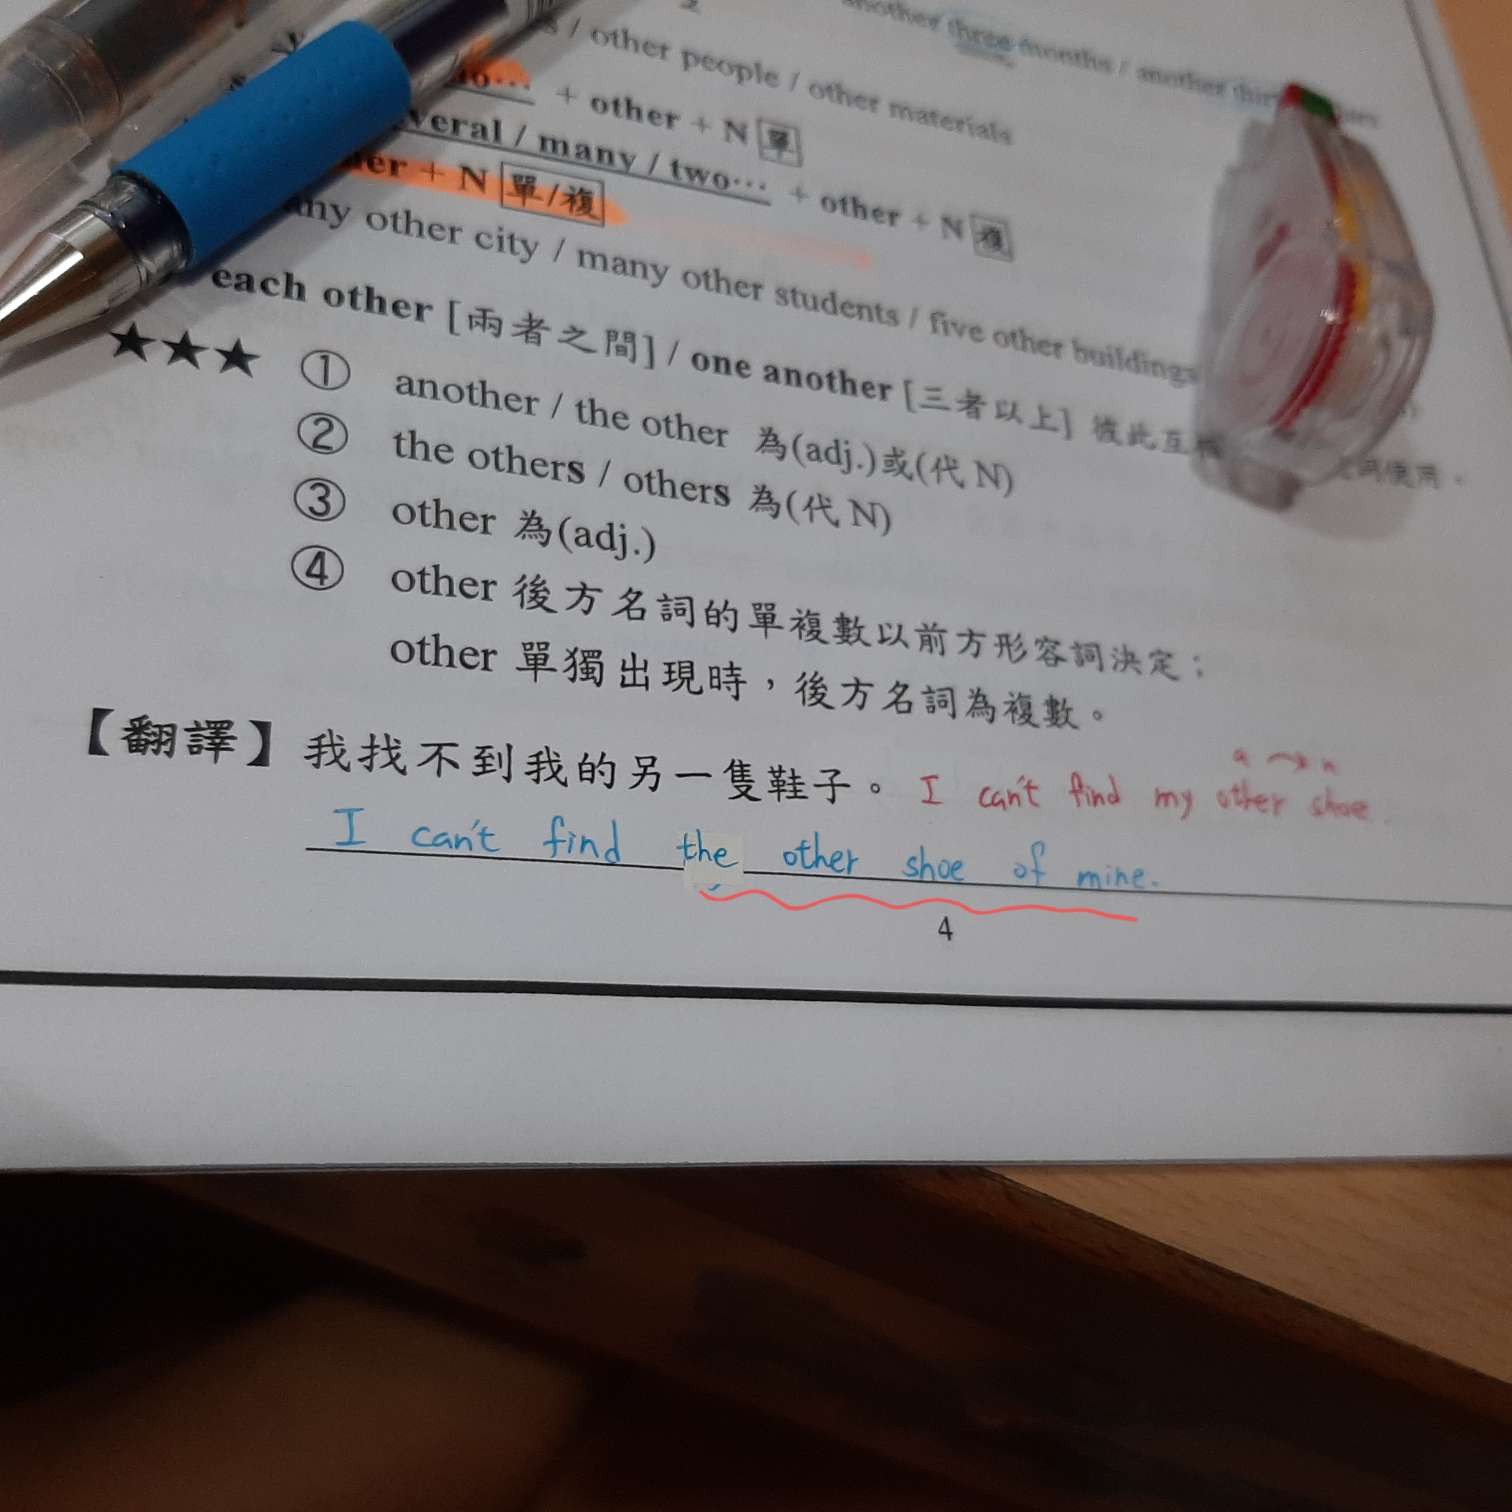 another three months / another
/ other people / other materials
+ other + N 單
many / two… + other + N 複
+ N 單/複
other city / many other students / five other buildings
each other [兩者之間] / one another [三者以上] 彼此互
★★★ ① another / the other 為(adj.)或(代 N)
② the others / others 為(代 N)
③ other 為(adj.)
④ other 後方名詞的單複數以前方形容詞決定；
other 單獨出現時，後方名詞為複數。
a → n
【翻譯】我找不到我的另一隻鞋子。 I can't find my other shoe.
I can't find the other shoe of mine.
4